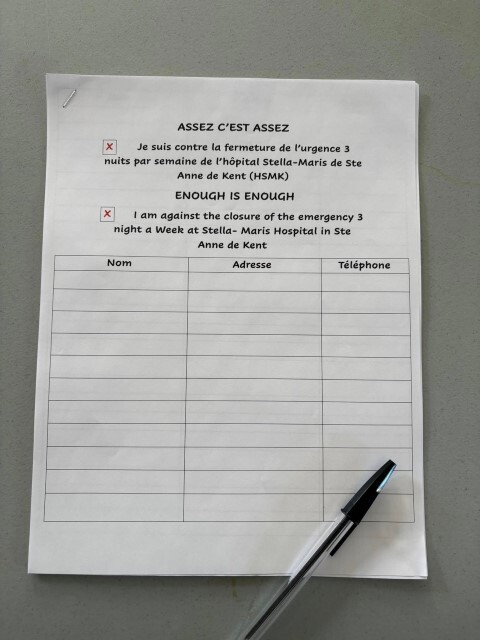 ASSEZ C'EST ASSEZ
x Je suis contre la fermeture de l'urgence 3
nuits par semaine de l'hôpital Stella-Maris de Ste
Anne de Kent (HSMK)
ENOUGH IS ENOUGH
x I am against the closure of the emergency 3
night a Week at Stella- Maris Hospital in Ste
Anne de Kent
Nom Adresse Téléphone